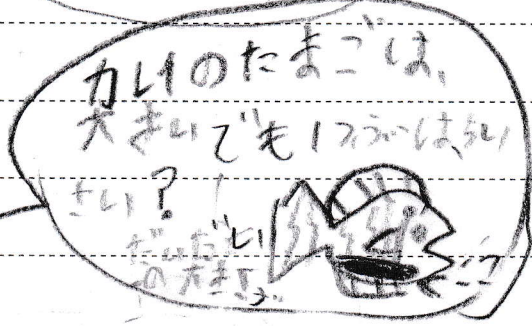 カレイのたまごは、
大きいでも1つぶは、ちい
さい?
だいだい
の大きさ